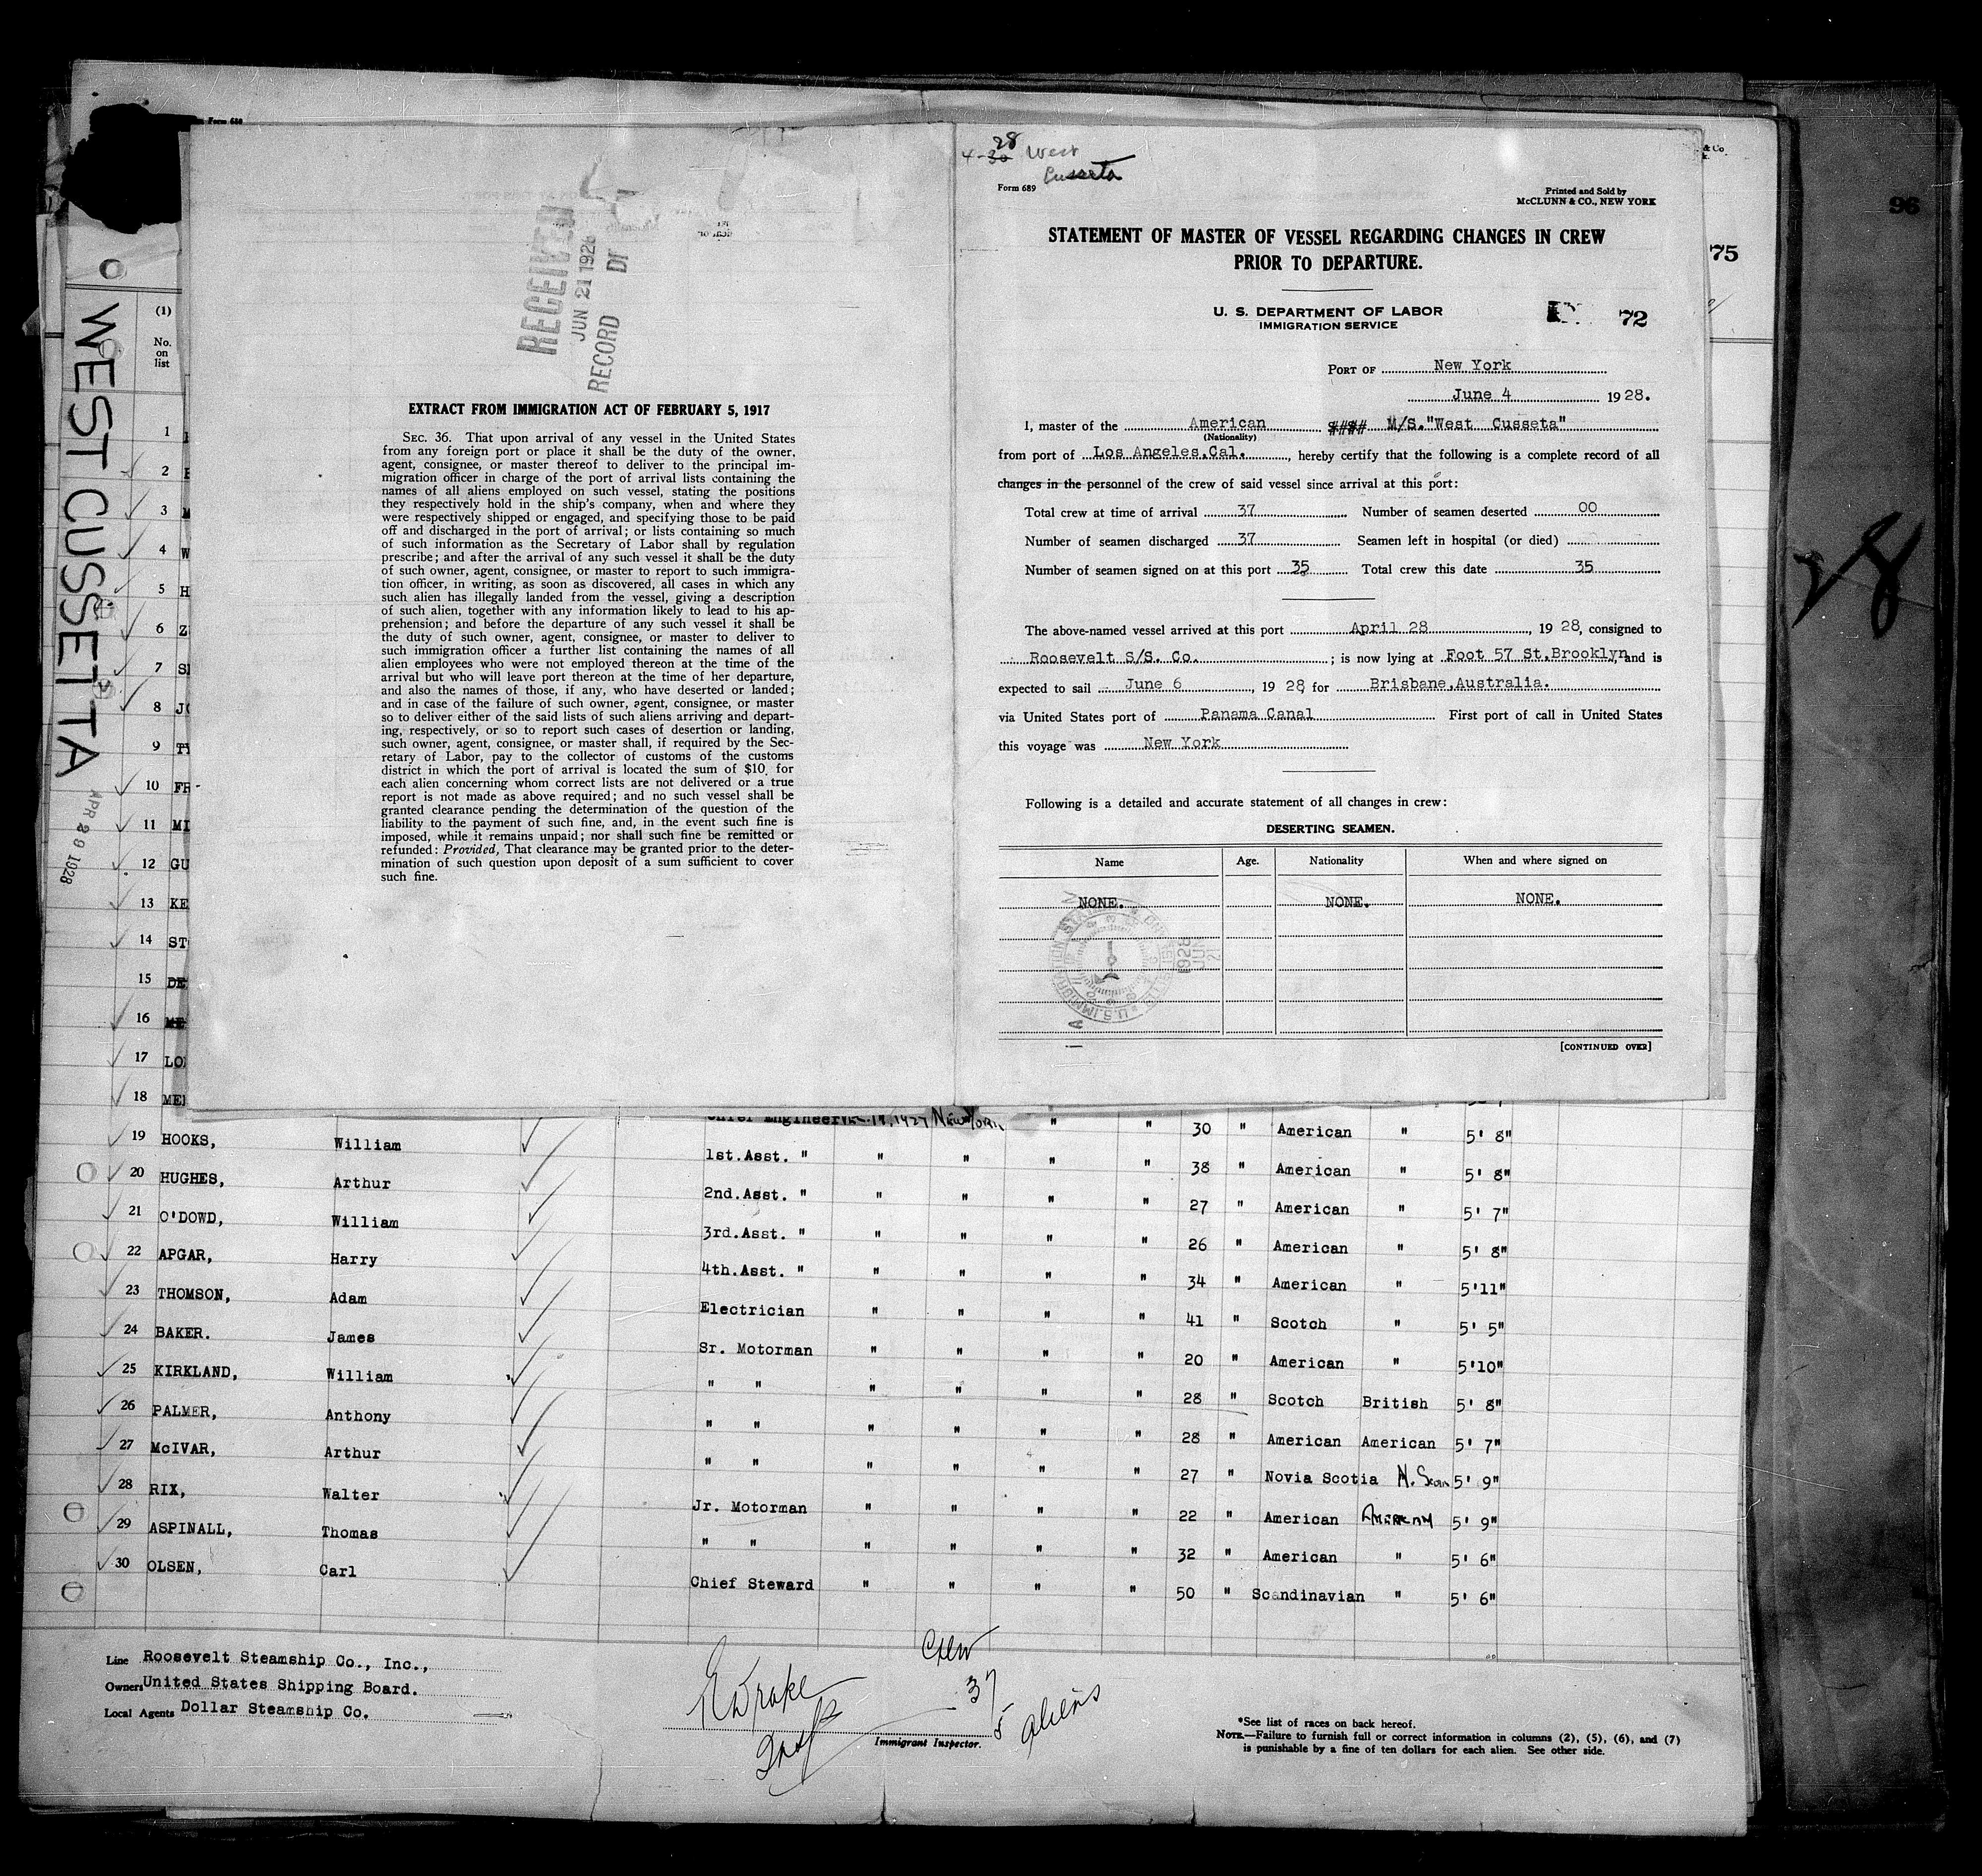 Form 680
WEST CUSSETA
APR 29 1928
(1)
No.
on
list
1
2
3
4 W
5 H
6 Z
7 S
8 JO
9
10 FR
11 MI
12 GU
13 KE
14 ST
15 DE
16 ME
17 LO
18 ME
RECEIVED
JUN 21 1928
RECORD DI
EXTRACT FROM IMMIGRATION ACT OF FEBRUARY 5, 1917
SEC. 36. That upon arrival of any vessel in the United States
from any foreign port or place it shall be the duty of the owner,
agent, consignee, or master thereof to deliver to the principal im-
migration officer in charge of the port of arrival lists containing the
names of all aliens employed on such vessel, stating the positions
they respectively hold in the ship's company, when and where they
were respectively shipped or engaged, and specifying those to be paid
off and discharged in the port of arrival; or lists containing so much
of such information as the Secretary of Labor shall by regulation
prescribe; and after the arrival of any such vessel it shall be the duty
of such owner, agent, consignee, or master to report to such immigra-
tion officer, in writing, as soon as discovered, all cases in which any
such alien has illegally landed from the vessel, giving a description
of such alien, together with any information likely to lead to his ap-
prehension; and before the departure of any such vessel it shall be
the duty of such owner, agent, consignee, or master to deliver to
such immigration officer a further list containing the names of all
alien employees who were not employed thereon at the time of the
arrival but who will leave port thereon at the time of her departure,
and also the names of those, if any, who have deserted or landed;
and in case of the failure of such owner, agent, consignee, or master
so to deliver either of the said lists of such aliens arriving and depart-
ing, respectively, or so to report such cases of desertion or landing,
such owner, agent, consignee, or master shall, if required by the Sec-
retary of Labor, pay to the collector of customs of the customs
district in which the port of arrival is located the sum of $10 for
each alien concerning whom correct lists are not delivered or a true
report is not made as above required; and no such vessel shall be
granted clearance pending the determination of the question of the
liability to the payment of such fine, and, in the event such fine is
imposed, while it remains unpaid; nor shall such fine be remitted or
refunded: Provided, That clearance may be granted prior to the deter-
mination of such question upon deposit of a sum sufficient to cover
such fine.
28
4-30 West
Cusseta
Form 689
Printed and Sold by
McCLUNN & CO., NEW YORK
STATEMENT OF MASTER OF VESSEL REGARDING CHANGES IN CREW
PRIOR TO DEPARTURE.
U. S. DEPARTMENT OF LABOR
IMMIGRATION SERVICE
72
PORT OF New York
June 4 1928.
I, master of the American #### M/S."West Cusseta"
(Nationality)
from port of Los Angeles.Cal., hereby certify that the following is a complete record of all
changes in the personnel of the crew of said vessel since arrival at this port:
Total crew at time of arrival 37 Number of seamen deserted 00
Number of seamen discharged 37 Seamen left in hospital (or died)
Number of seamen signed on at this port 35 Total crew this date 35
The above-named vessel arrived at this port April 28, 19 28, consigned to
Roosevelt S/S. Co. ; is now lying at Foot 57 St.Brooklyn, and is
expected to sail June 6, 19 28 for Brisbane,Australia.
via United States port of Panama Canal First port of call in United States
this voyage was New York
Following is a detailed and accurate statement of all changes in crew:
DESERTING SEAMEN.
Name Age. Nationality When and where signed on
NONE. NONE. NONE.
[CONTINUED OVER]
& Co
75
96
28
Chief Engineer 1927 New York " " 30 " American " 5' 8"
19 HOOKS, William 1st.Asst. " " " " " 38 " American " 5' 8"
20 HUGHES, Arthur 2nd.Asst. " " " " " 27 " American " 5' 7"
21 O'DOWD, William 3rd.Asst. " " " " " 26 " American " 5' 8"
22 APGAR, Harry 4th.Asst. " " " " " 34 " American " 5'11"
23 THOMSON, Adam Electrician " " " " 41 " Scotch " 5' 5"
24 BAKER. James Sr. Motorman " " " " 20 " American " 5'10"
25 KIRKLAND, William " " " " " " 28 " Scotch British 5' 8"
26 PALMER, Anthony " " " " " " 28 " American American 5' 7"
27 McIVAR, Arthur " " " " " " 27 " Novia Scotia N. Scotia 5' 9"
28 RIX, Walter Jr. Motorman " " " " 22 " American American 5' 9"
29 ASPINALL, Thomas " " " " " " 32 " American " 5' 6"
30 OLSEN, Carl Chief Steward " " " " 50 " Scandinavian " 5' 6"
Line Roosevelt Steamship Co., Inc.,
Owners United States Shipping Board.
Local Agents Dollar Steamship Co.
Crew
37
5 aliens
E Drake
Insp
Immigrant Inspector.
*See list of races on back hereof.
NOTE.—Failure to furnish full or correct information in columns (2), (5), (6), and (7)
is punishable by a fine of ten dollars for each alien. See other side.